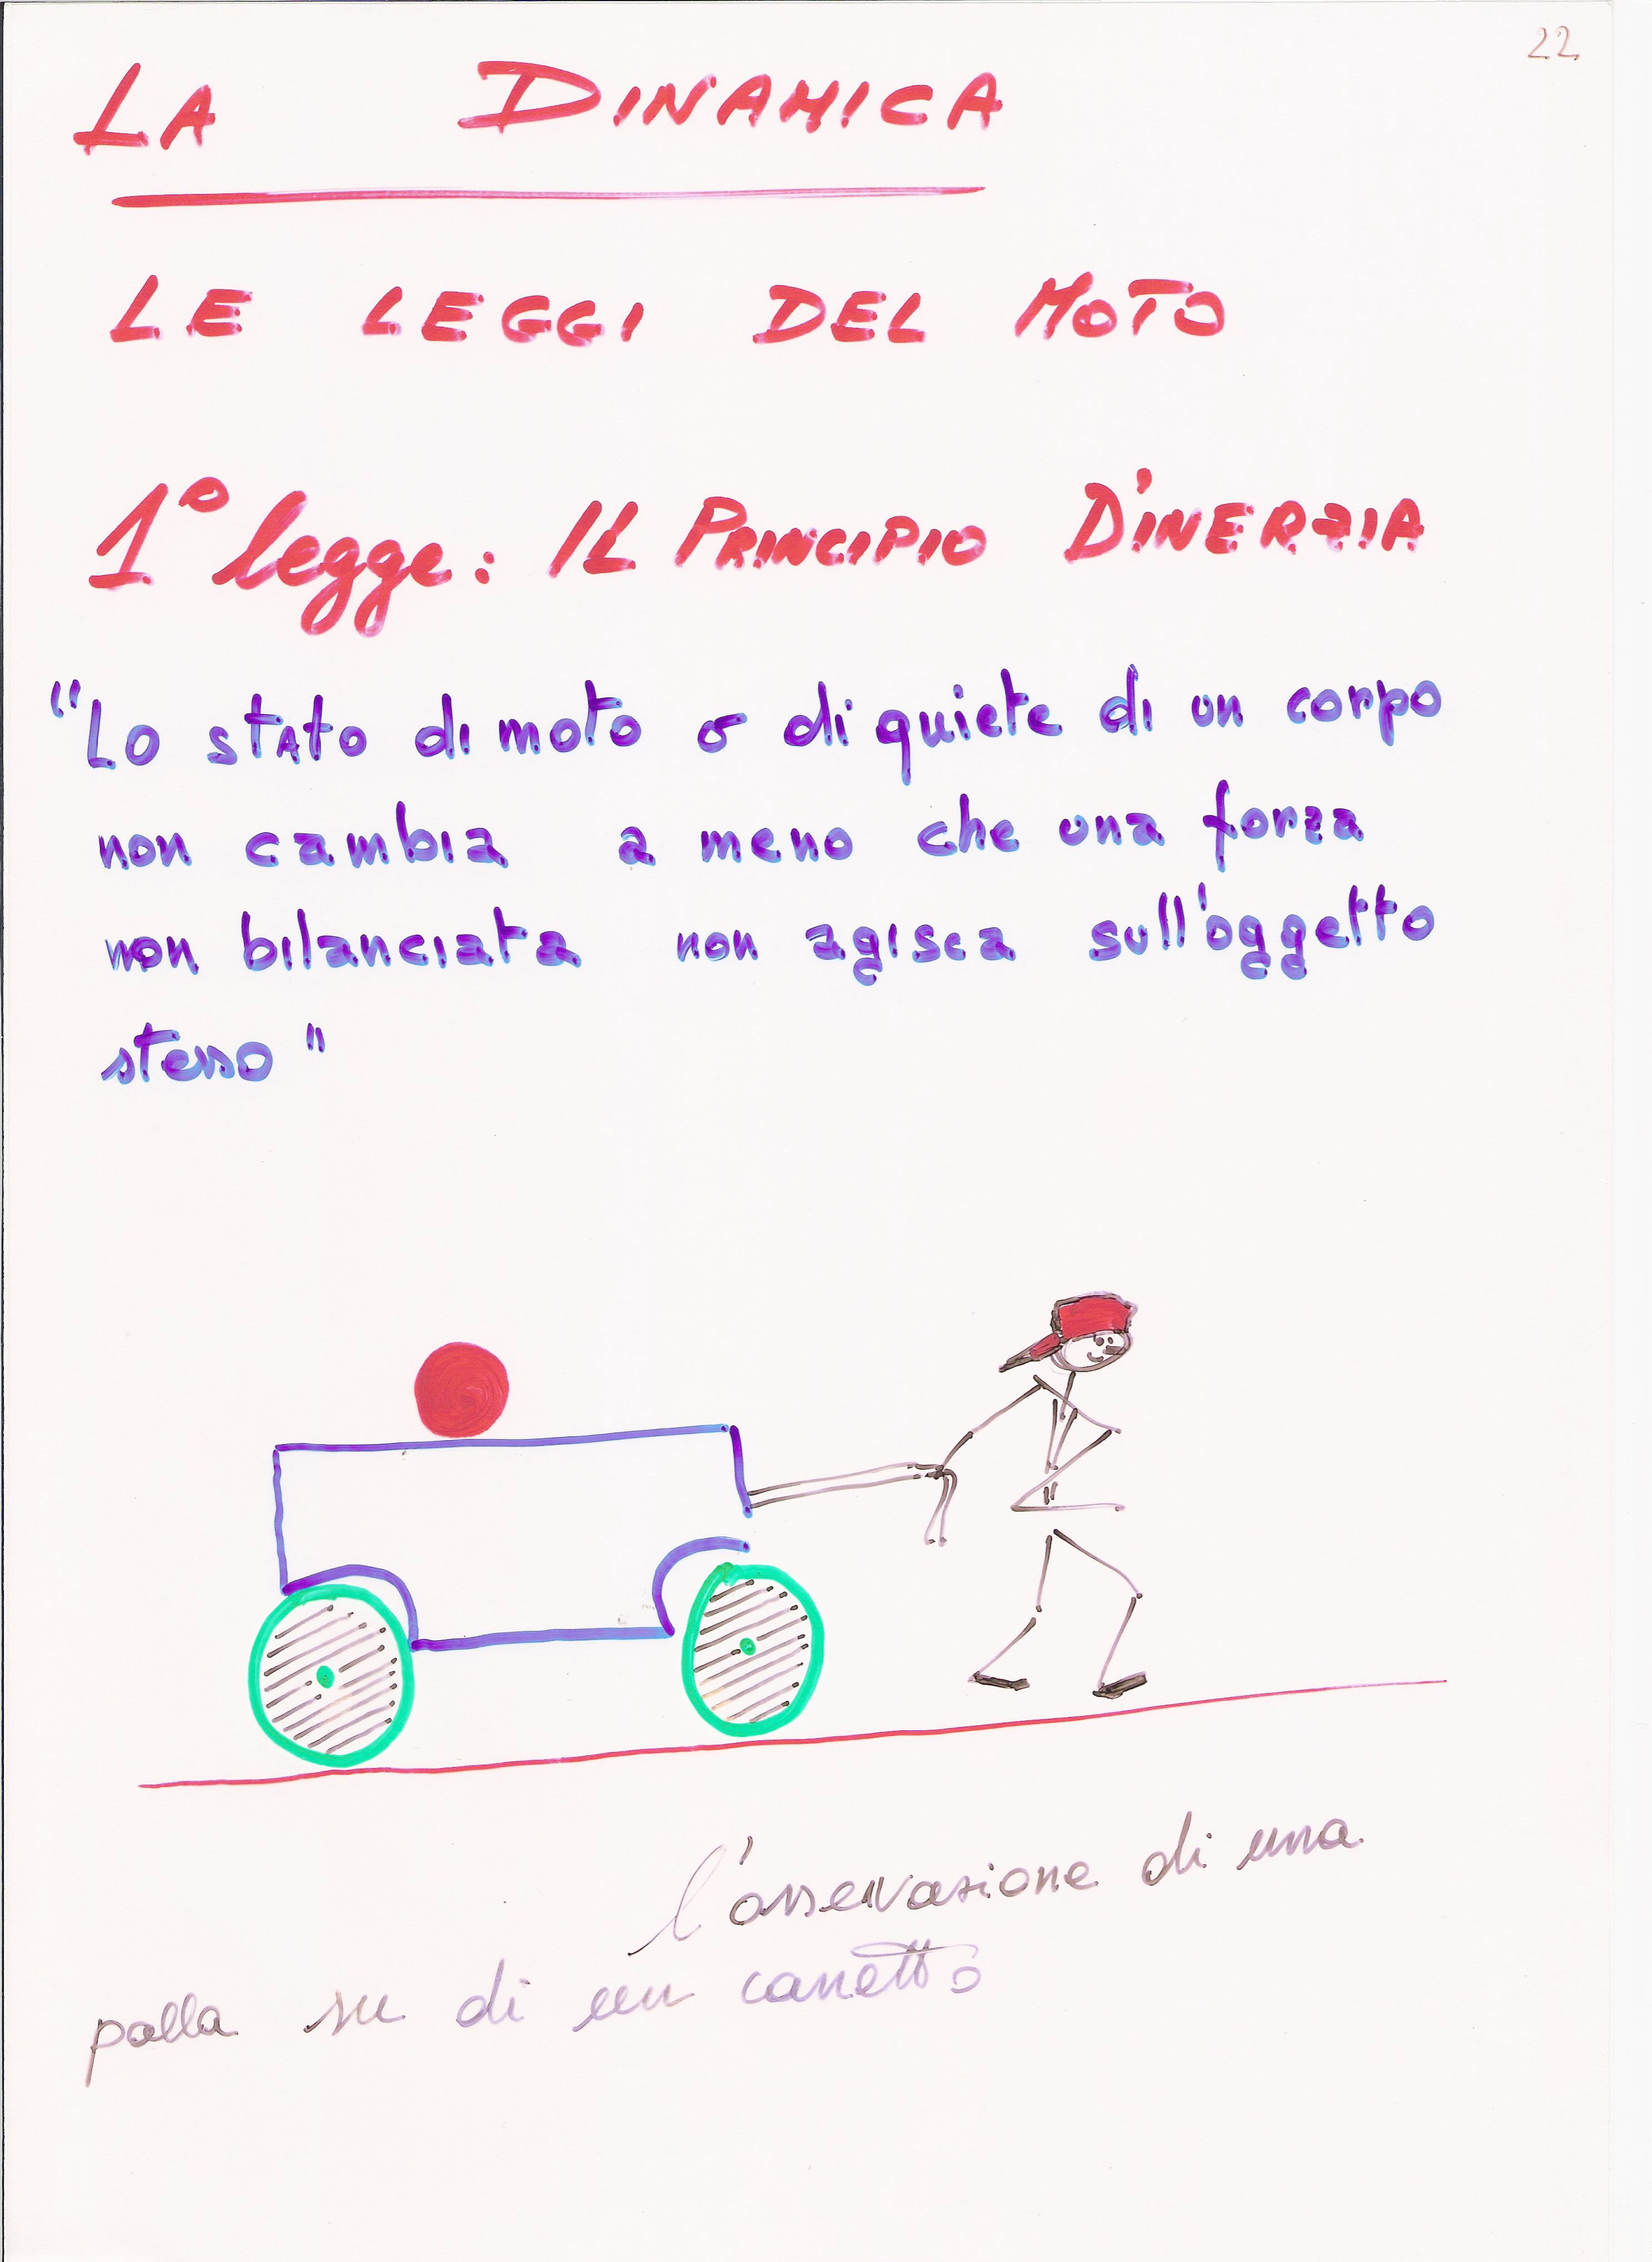 22
LA DINAMICA
LE LEGGI DEL MOTO
1° legge: IL PRINCIPIO D'INERZIA
"Lo stato di moto o di quiete di un corpo
non cambia a meno che una forza
non bilanciata non agisca sull'oggetto
stesso"
l'osservazione di una
palla su di un carretto